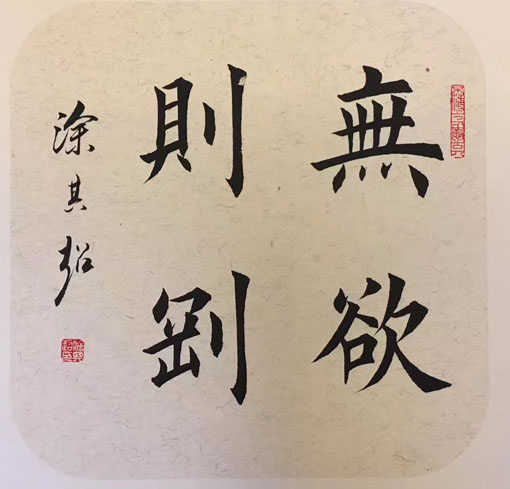 無欲
則剛
涂其超